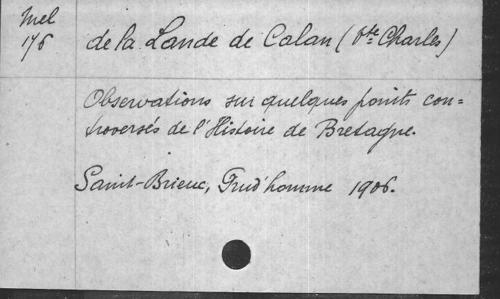 Mel
176
de la Lande de Calan (Vte Charles)
Observations sur quelques points con=
troversés de l'Histoire de Bretagne.
Saint-Brieuc, Prud'homme 1906.